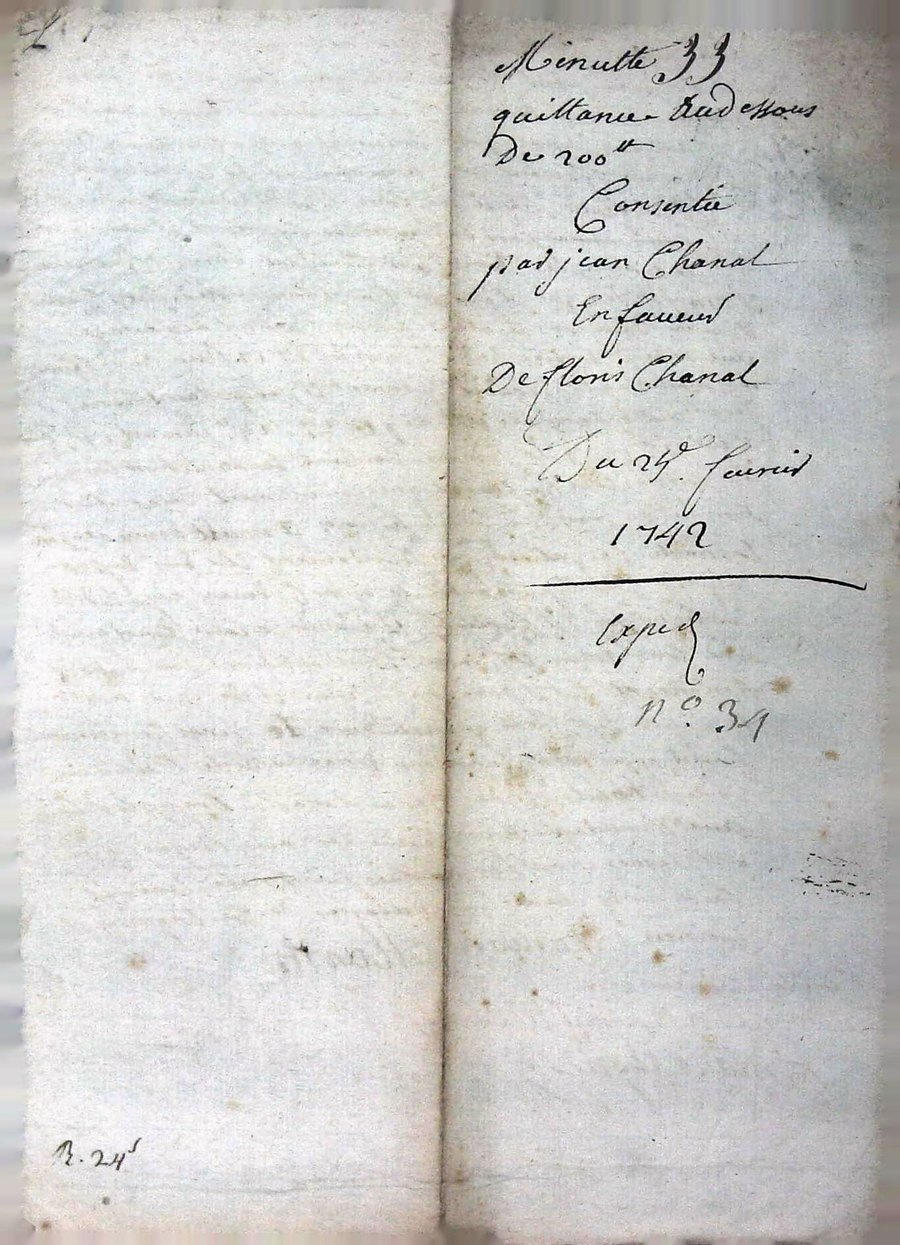 Minutte 33
quittance audessous
De 200tt
Consentie
par jean Chanal
En faueur
De floris Chanal
Du feurier
1742
Exped
n° 34
R. 24s